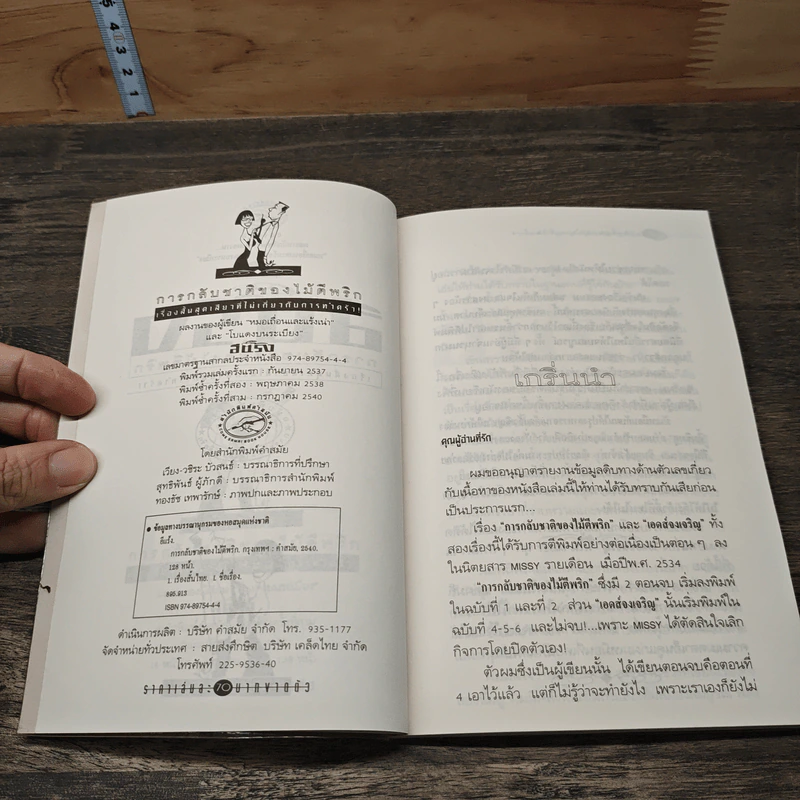 5
4
3
2
1
การกลับชาติของไม้ตีพริก
เรื่องสั้นสุดเสียวที่ไม่เกี่ยวกับการทำครัว!
ผลงานของผู้เขียน "หมอเถื่อนและแร้งเน่า"
และ "โบแดงบนระเบียง"
อีแร้ง
เลขมาตรฐานสากลประจำหนังสือ 974-89754-4-4
พิมพ์รวมเล่มครั้งแรก : กันยายน 2537
พิมพ์ซ้ำครั้งที่สอง : พฤษภาคม 2538
พิมพ์ซ้ำครั้งที่สาม : กรกฎาคม 2540
โดยสำนักพิมพ์คำสมัย
เวียง-วชิระ บัวสนธ์ : บรรณาธิการที่ปรึกษา
สุทธิพันธ์ ผู้ภักดี : บรรณาธิการสำนักพิมพ์
ทองธัช เทพารักษ์ : ภาพปกและภาพประกอบ
ข้อมูลทางบรรณานุกรมของหอสมุดแห่งชาติ
อีแร้ง.
การกลับชาติของไม้ตีพริก. กรุงเทพฯ : คำสมัย, 2540.
128 หน้า.
1. เรื่องสั้นไทย. I. ชื่อเรื่อง.
895.913
ISBN 974-89754-4-4
ดำเนินการผลิต : บริษัท คำสมัย จำกัด โทร. 935-1177
จัดจำหน่ายทั่วประเทศ : สายส่งศึกษิต บริษัท เคล็ดไทย จำกัด
โทรศัพท์ 225-9536-40
ราคาเล่มละ 70 บาทขาดตัว
เกริ่นนำ
คุณผู้อ่านที่รัก
ผมขออนุญาตรายงานข้อมูลดิบทางด้านตัวเลขเกี่ยว
กับเนื้อหาของหนังสือเล่มนี้ให้ท่านได้รับทราบกันเสียก่อน
เป็นประการแรก...
เรื่อง "การกลับชาติของไม้ตีพริก" และ "เอดส์จงเจริญ" ทั้ง
สองเรื่องนี้ได้รับการตีพิมพ์อย่างต่อเนื่องเป็นตอน ๆ ลง
ในนิตยสาร MISSY รายเดือน เมื่อปีพ.ศ. 2534
"การกลับชาติของไม้ตีพริก" ซึ่งมี 2 ตอนจบ เริ่มลงพิมพ์
ในฉบับที่ 1 และที่ 2 ส่วน "เอดส์จงเจริญ" นั้นเริ่มพิมพ์ใน
ฉบับที่ 4-5-6 และไม่จบ!...เพราะ MISSY ได้ตัดสินใจเลิก
กิจการโดยปิดตัวเอง!
ตัวผมซึ่งเป็นผู้เขียนนั้น ได้เขียนตอนจบคือตอนที่
4 เอาไว้แล้ว แต่ก็ไม่รู้ว่าจะทำยังไง เพราะเราเองก็ยังไม่